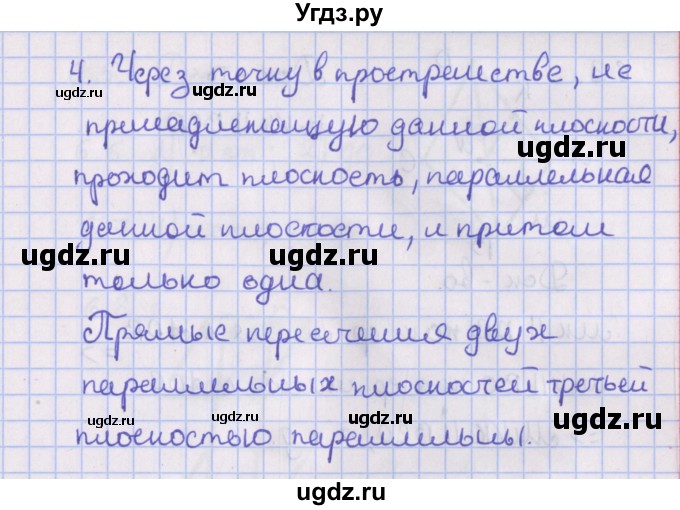 Угдз.ру
4. Через точку в пространстве, не
ugdz.ru ugdz.ru ugdz.ru ugdz.ru
принадлежащую данной плоскости,
ugdz.ru
проходит плоскость, параллельная
данной плоскости, и притом
ugdz.ru ugdz.ru
только одна.
Прямые пересечения двух
параллельных плоскостей третьей
ugdz.ru ugdz.ru ugdz.ru ugdz.ru
плоскостью параллельны.
ugdz.ru